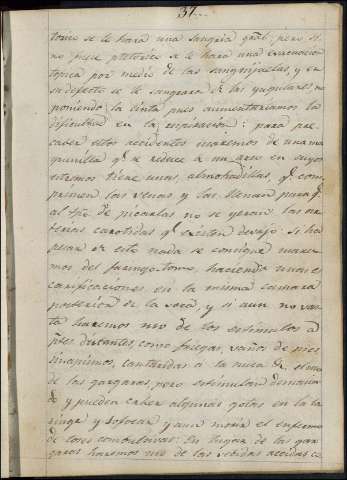 37..
torico se le hará una sangria gral; pero si
no fuese pletorico se le hará una evacuacion
topica por medio de las sanguijuelas, y en
su defecto se le sangrará de las yugulares no
poniendo la cinta pues aumentariamos la
dificultad en la respiracion: para pre-
caber estos accidentes usaremos de una ma
quinilla q. se reduce a un arco en cuyos
estremos tiene unas almohadillas, q. com
primen las venas, y las llenan para q.
al tpo de picarlas no se yeran las ar-
terias carotidas q. existen devajo: Si ha
pesar de esto nada se consigue usare-
mos del faringotomo, haciendo unas es
carificaciones en la misma camara
posterior de la voca, y si aun no vas-
ta haremos uso de los estimulos a
ptes distantes, como friegas, vaños de pies
sinapismos, cantaridas a la nuca &. el uso
de las gargaras, pero estimulan demasia-
do y pueden caher algunas gotas en la la
ringe y sofocar y aun morir el enfermo
de toses convulsivas: En lugar de las gar
garas haremos uso de las vebidas acidas co